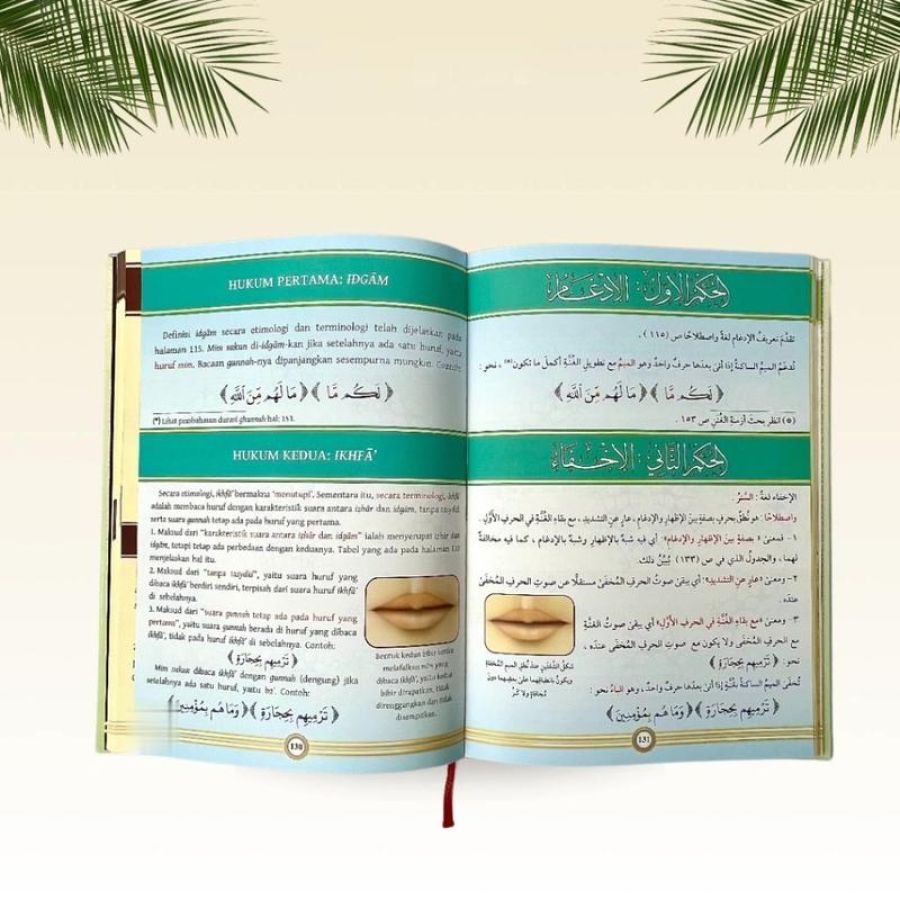 HUKUM PERTAMA: IDGĀM
Definisi idgām secara etimologi dan terminologi telah dijelaskan pada
halaman 115. Mim sakun di-idgām-kan jika setelahnya ada satu huruf, yaitu
huruf mim. Bacaan gunnah-nya dipanjangkan sesempurna mungkin. Contoh:
﴿ لَكُم مَّا ﴾ ﴿ مَا لَهُم مِّنَ ٱللَّهِ ﴾
(*) Lihat pembahasan durasi ghunnah hal. 153.
HUKUM KEDUA: IKHFĀ’
Secara etimologi, ikhfā’ bermakna ‘menutupi’. Sementara itu, secara terminologi, ikhfā’
adalah membaca huruf dengan karakteristik suara antara izhār dan idgām, tanpa tasydīd
serta suara gunnah tetap ada pada huruf yang pertama.
1. Maksud dari “karakteristik suara antara izhār dan idgām” ialah menyerupai izhār dan
idgām, tetapi tetap ada perbedaan dengan keduanya. Tabel yang ada pada halaman 133
menjelaskan hal itu.
2. Maksud dari “tanpa tasydīd”, yaitu suara huruf yang
dibaca ikhfā’ berdiri sendiri, terpisah dari suara huruf ikhfā’
di sebelahnya.
3. Maksud dari “suara gunnah tetap ada pada huruf yang
pertama”, yaitu suara gunnah berada di huruf yang dibaca
ikhfā’, tidak pada huruf ikhfā’ di sebelahnya. Contoh:
﴿ تَرْمِيهِم بِحِجَارَةٍ ﴾
Mim sakun dibaca ikhfā’ dengan gunnah (dengung) jika
setelahnya ada satu huruf, yaitu ba’. Contoh:
﴿ تَرْمِيهِم بِحِجَارَةٍ ﴾ ﴿ وَمَا هُم بِمُؤْمِنِينَ ﴾
Bentuk kedua bibir ketika
melafalkan mim yang
dibaca ikhfā’, yaitu kedua
bibir dirapatkan. Tidak
direnggangkan dan tidak
disempitkan.
130
الحكم الأول: الإدغام
تقدَّمَ تعريفُ الإدغامِ لغةً واصطلاحًا ص (١١٥)
تُدغَمُ الميمُ الساكنةُ إذا أتى بعدَها حرفٌ واحدٌ وهو الميمُ مع تطويلِ الغُنَّةِ أكملَ ما تكون(*)، نحو:
﴿ لَكُم مَّا ﴾ ﴿ مَا لَهُم مِّنَ ٱللَّهِ ﴾
(*) انظر بحثَ أزمنةِ الغُنَنِ ص ١٥٣.
الحكم الثاني: الإخفاء
الإخفاء لغةً: السَّترُ.
واصطلاحًا: هو نُطقٌ بحرفٍ بصفةٍ بينَ الإظهارِ والإدغامِ، عارٍ عن التشديدِ، مع بقاءِ الغُنَّةِ في الحرفِ الأوَّلِ.
١- فمعنى «بصفةٍ بينَ الإظهارِ والإدغامِ» أي فيه شَبهٌ بالإظهارِ وشَبهٌ بالإدغامِ، كما فيه مخالفةٌ
لهما، والجدولُ الذي في ص (١٣٣) يُبَيِّنُ ذلك.
٢- ومعنى «عارٍ عن التشديدِ»: أي يبقى صوتُ الحرفِ المُخفَى مستقلًّا عن صوتِ الحرفِ المُخفَى
عندَه.
٣- ومعنى «مع بقاءِ الغُنَّةِ في الحرفِ الأوَّلِ» أي يبقى صوتُ الغُنَّةِ
مع الحرفِ المُخفَى ولا يكون مع صوتِ الحرفِ المُخفَى عندَه،
نحو: ﴿ تَرْمِيهِم بِحِجَارَةٍ ﴾
تُخفَى الميمُ الساكنةُ بغُنَّةٍ إذا أتى بعدَها حرفٌ واحدٌ، وهو الباءُ نحو:
﴿ تَرْمِيهِم بِحِجَارَةٍ ﴾ ﴿ وَمَا هُم بِمُؤْمِنِينَ ﴾
شكلُ الشَّفتَينِ عندَ نُطقِ الميمِ المُخفاةِ
131